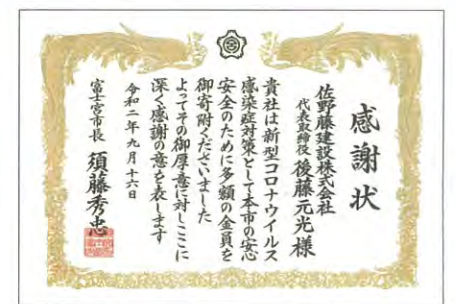 感謝状
佐野藤建設株式会社
代表取締役 後藤元光様
貴社は新型コロナウイルス
感染症対策として本市の安心
安全のために多額の金員を
御寄附くださいました
よってその御厚意に対しここに
深く感謝の意を表します
令和二年九月十六日
富士宮市長 須藤秀忠